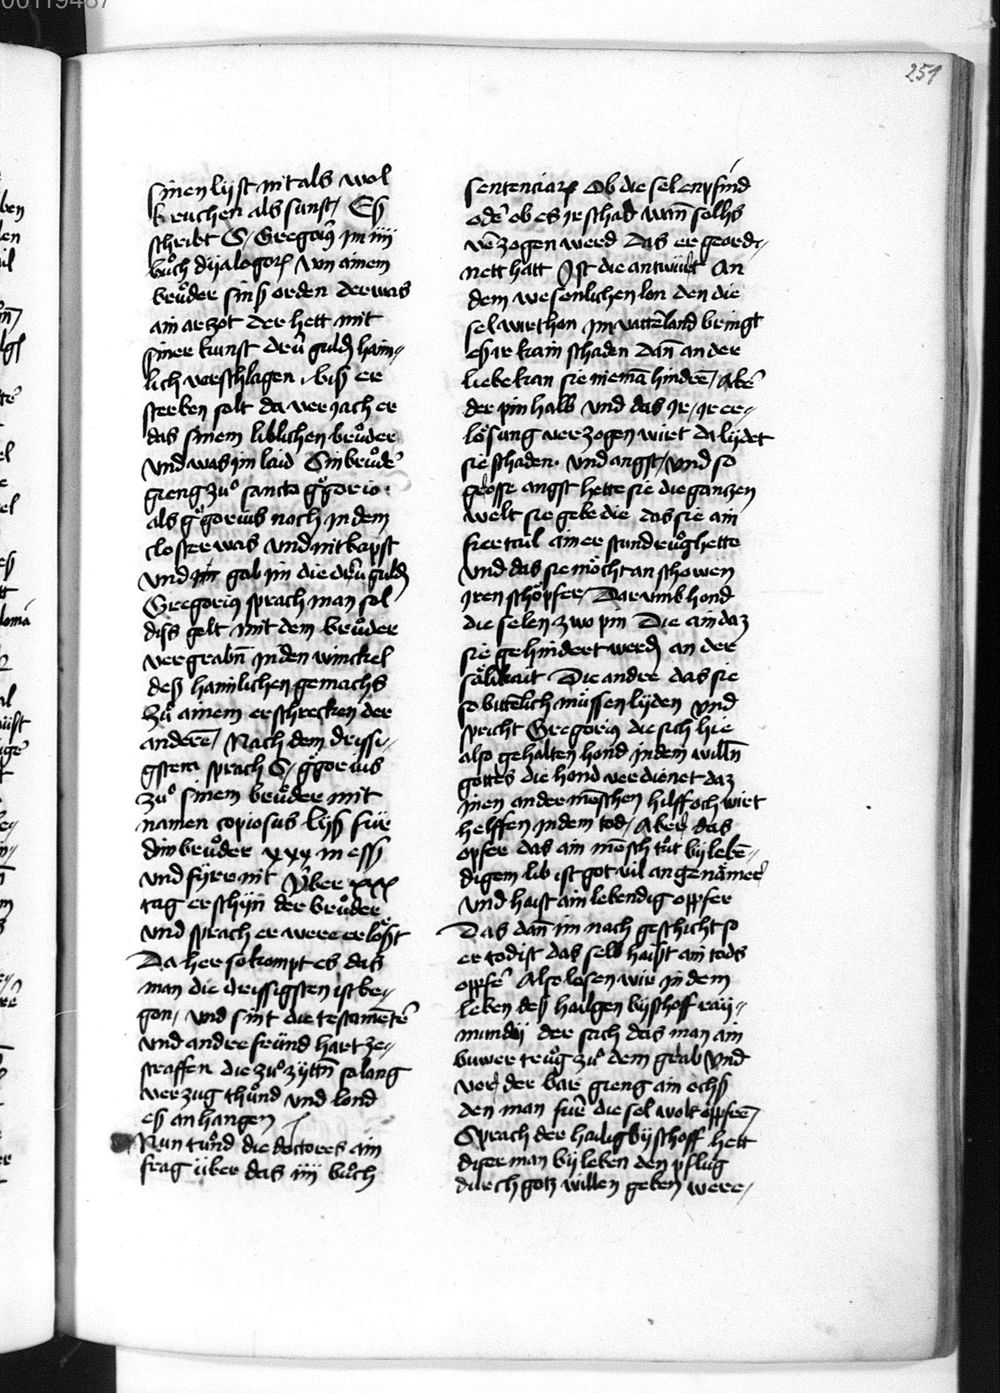 251
sinen lijst nit als wol
bruchen als sunst / Es
schribt S. Gregorius jm iiij
buͦch dyalogorum von ainem
bruͦder sinß orden der was
ain arzot der hett mit
siner kunst drü guldin haim„
lich verschlagen biß er
sterben solt da verjach er
das sinem liblichen bruͦder
vnd was jm laid Sin bruͦder
gieng zuͦ sancto gregorio
als gregorius noch jn dem
closter was vnd nit bapst
vnd gab jm die drü guldin
Gregorius sprach man sol
diß gelt mit dem bruͦder
vergrabn̄ jn den winckel
deß haimlichen gemachs
zuͦ ainem erschrecken der
anderē / Nach dem drissi„
gsten sprach S. gregorius
zuͦ sinem bruͦder mit
namen copiosus lyß für
din bruͦder xxx messß
vnd fyre nit Vber xxx
tag erschijn der bruͦder
vnd sprach er were erlöst
Da her so kompt es das
man die drissigsten ist be„
gon / vnd sint die testamētē
vnd andre fründ hart ze„
straffen die zuͦ zytten̄ so lang
verzug thuͦnd vnd lond
es anhangen
Nun tuͦnd die doctores ain
frag über das iiij buͦch
sentenciarum Ob die sel enpfind
oder ob es jr schad wan̄ sollichs
verzogen werd Das er geord„
nett hatt Jst die antwürt An
dem wesenlichen lon den die
sel wirt hon jm vatterland bringt
es jr kain schaden Dan̄ an der
liebe kan sie niemā hindrē / Aber
der pin halb vnd das jr / jr er„
lösung verzogen wirt da lijdet
sie schaden vnd angst / vnd so
grosse angst hette sie die ganczen
welt sie gebe die das sie ain
fiertail ainer stund ruͦg hette
vnd das sie möcht anschowen
jren schöpfer / Darumb hond
die selen zwo pin Die ain daz
sie gehindert werden an der
sälikait Die andre das sie
so bitterlich müssen lyden vnd
spricht Gregorius die sich hie
also gehalten hond jn dem willn̄
gottes die hond verdienet daz
jnen ander mēschen hilff och wirt
helffen jn dem tod / Aber das
opfer das ain mēsch tuͦt by lebē„
digem lib ist got vil angenämer
vnd haist ain lebendig opffer
Das dan̄ jm nach geschicht so
er tod ist das selb haißt ain tods
opffer Also lesen wir jn dem
leben deß hailgen byschoff ray„
mundij der sach das man ain
buwer truͦg zuͦ dem grab vnd
vor der bar gieng ain ochß
den man für die sel wolt opffrē /
Sprach der hailig byschoff hett
diser man by leben den pfluͦg
durch gotz willen geben were /